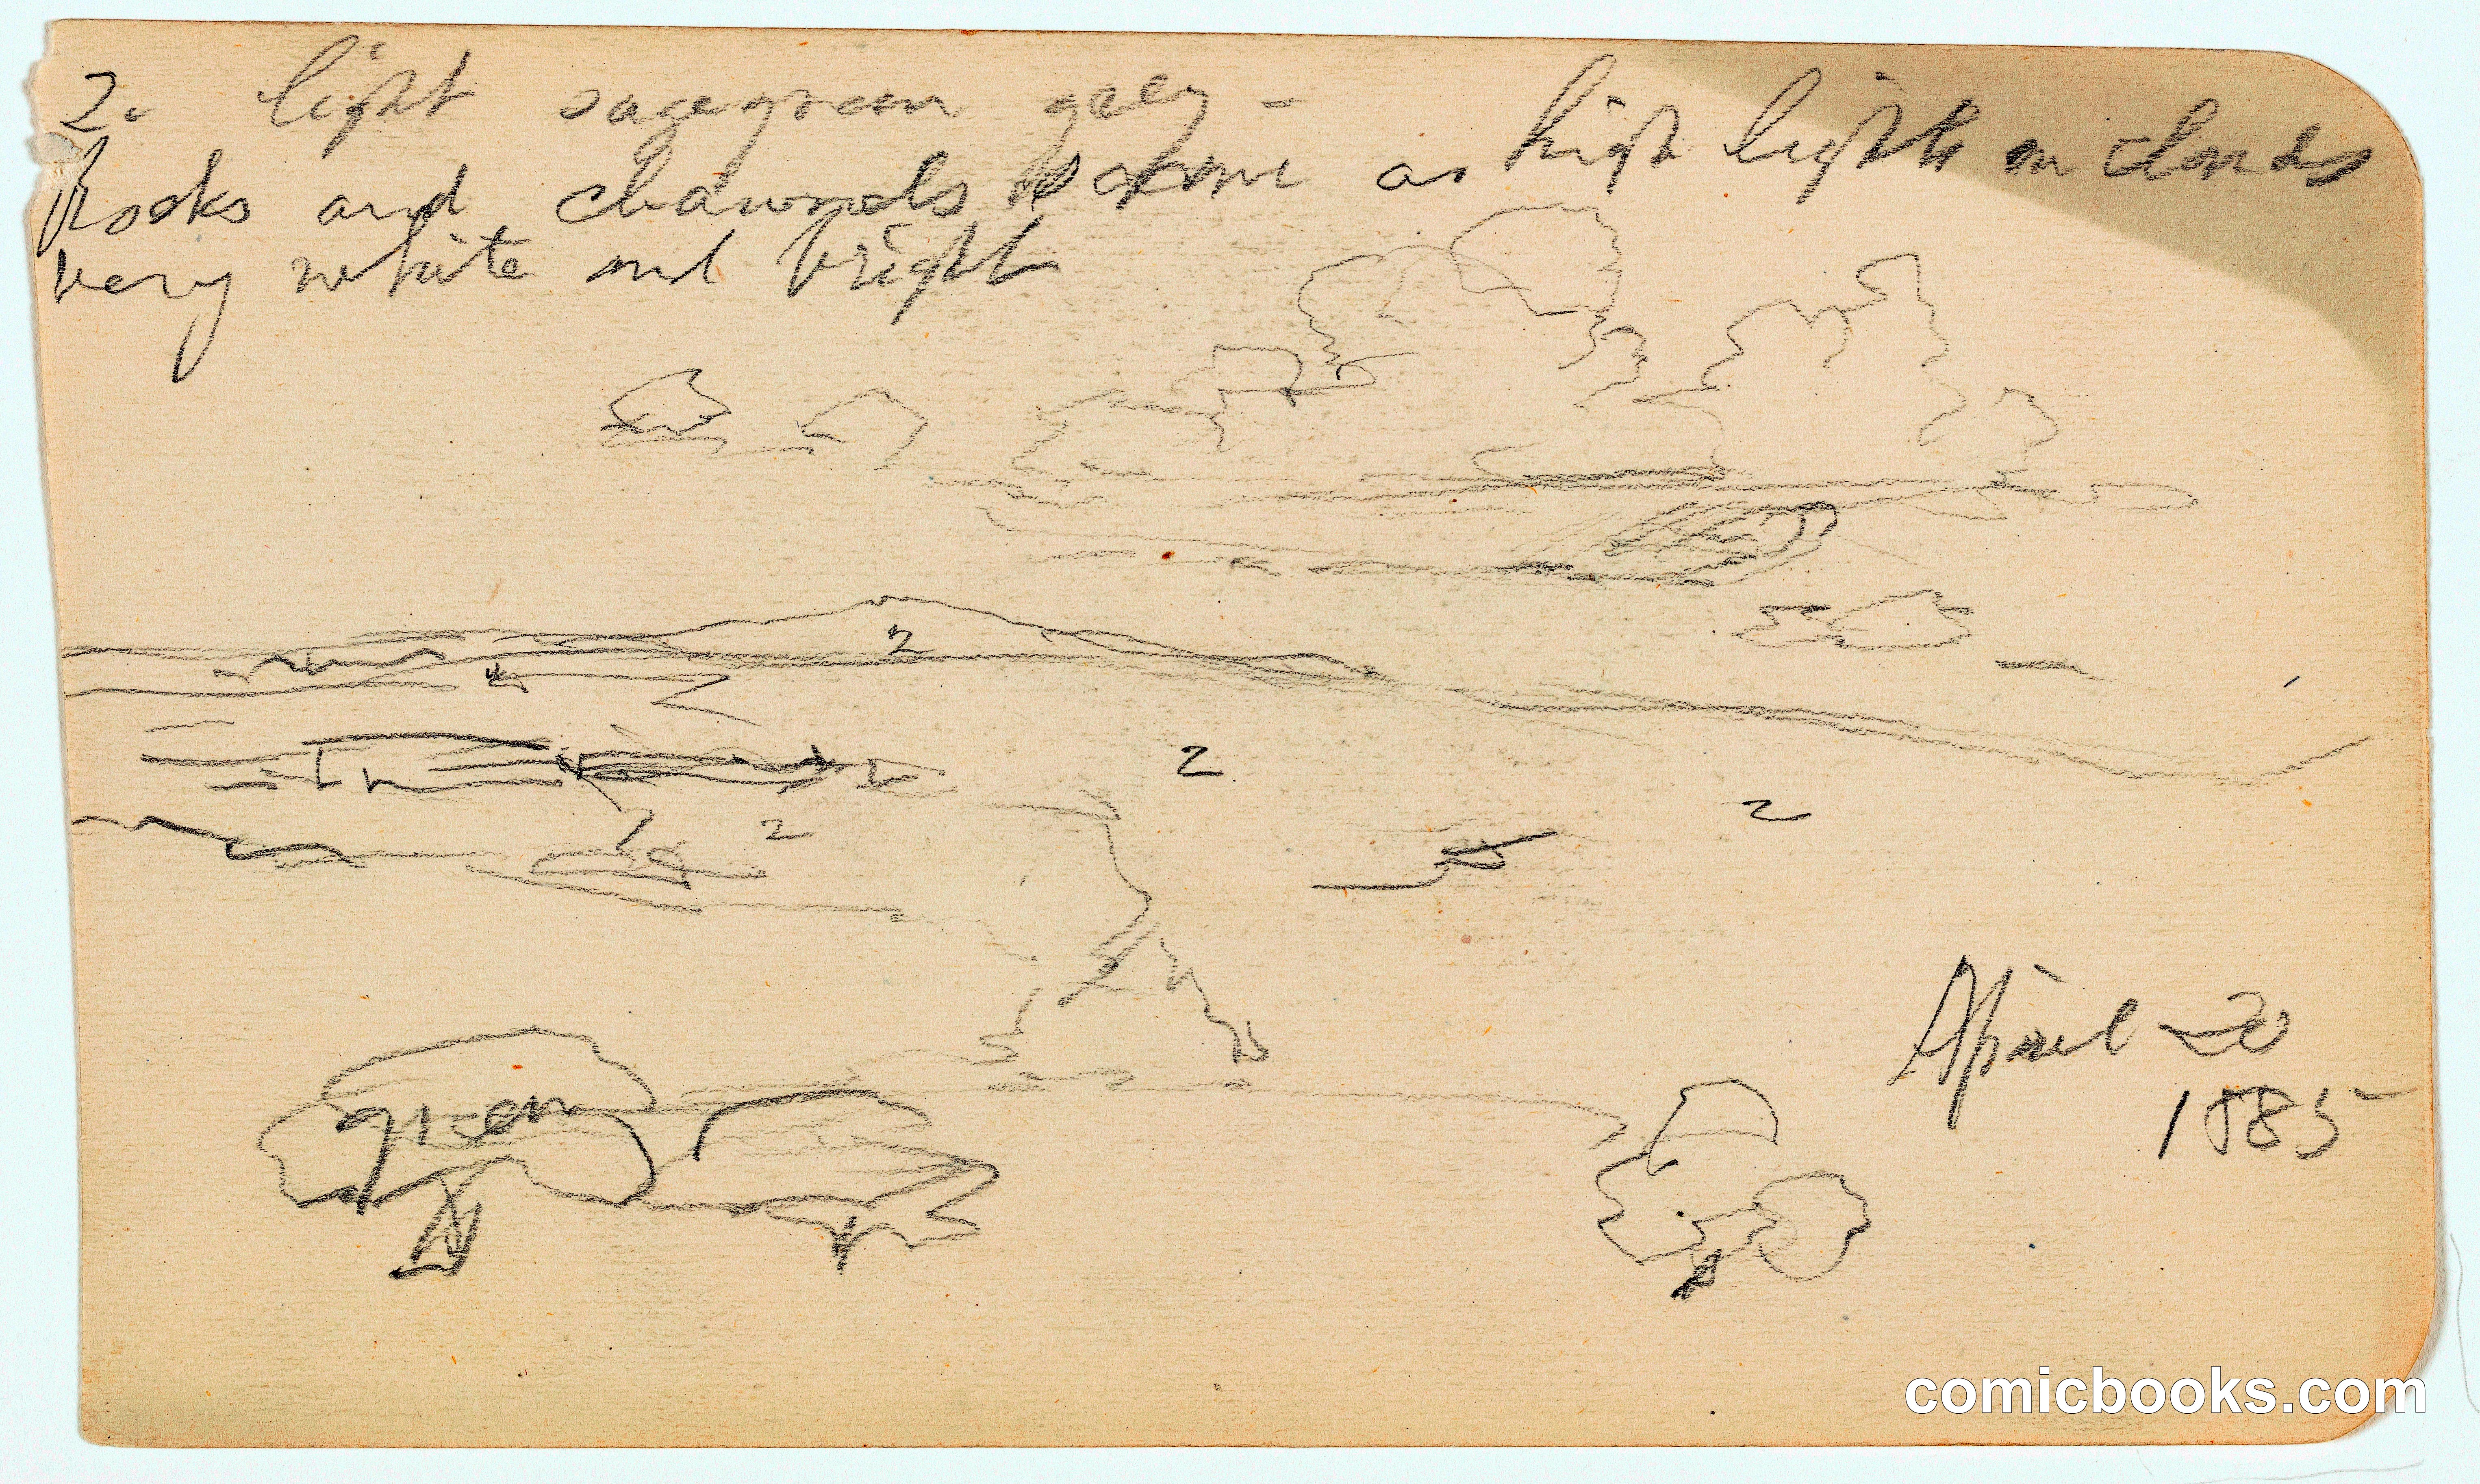 2. light sagegreen grey -
Rocks and channels same as high lights on clouds
very white and bright
2
2
2
2
green
April 20
1885
comicbooks.com